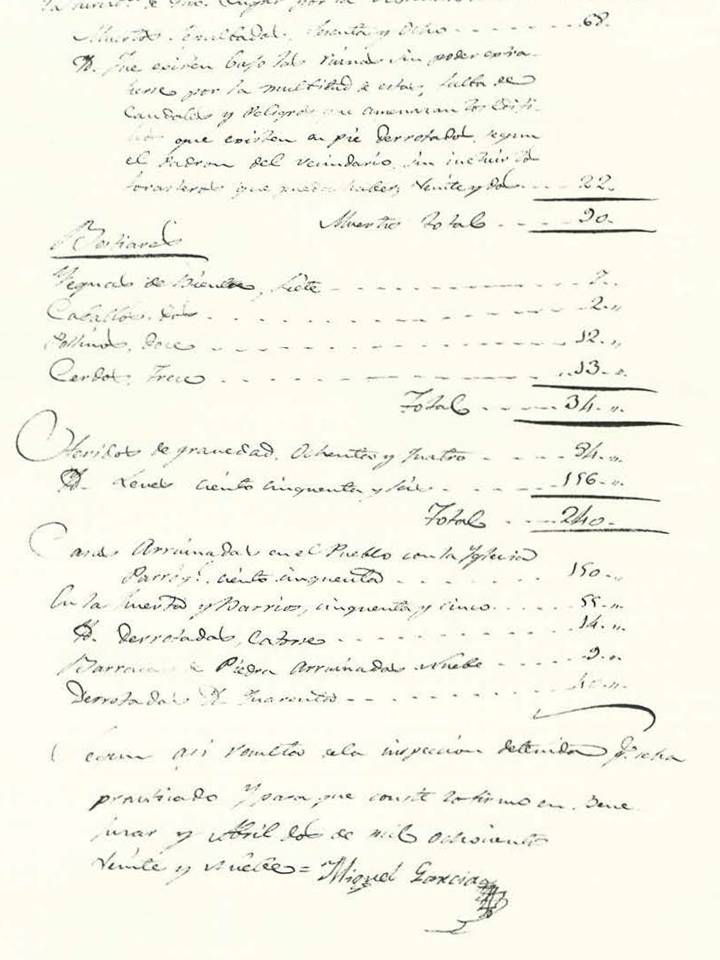 Muertos Sepultados, Sesenta y Ocho . . . 68.
Yd. que existen bajo las ruinas sin poder extra-
herse por la multitud de estas, falta de
Caudales y Peligros que amenazan los edifi-
cios que existen en pie derrotados, segun
el Padron del vecindario, sin incluir los
forasteros que pueda haber, Veinte y dos . . . 22.
Muertos total . . . 90.
Bestiares
Yeguas de Bientre, siete . . . 7.
Caballos, dos . . . 2.,,
Pollinos, doce . . . 12.,,
Cerdos, Trece . . . 13.,,
Total . . . 34.,,
Heridos de gravedad, Ochenta y quatro . . . 84.,,
Yd. Leves ciento cinquenta y seis . . . 156.,,
Total . . . 240.
Casas Arruinadas en el Pueblo con la Yglesia
Parroql. ciento cinquenta . . . 150.,,
En la huerta y Barrios, cinquenta y cinco . . . 55.,,
Yd. Derrotadas, Catorse . . . 14.,,
Barracas de Piedra Arruinadas Nuebe . . . 9.,,
Derrotadas Yd. Quarenta . . . 40.,,
asi resulta de la inspeccion detenida qe. se ha
practicado Y para que conste lo firmo en Bene
juzar y Abril dos de mil ochocientos
Veinte y nuebe = Miguel Garcia